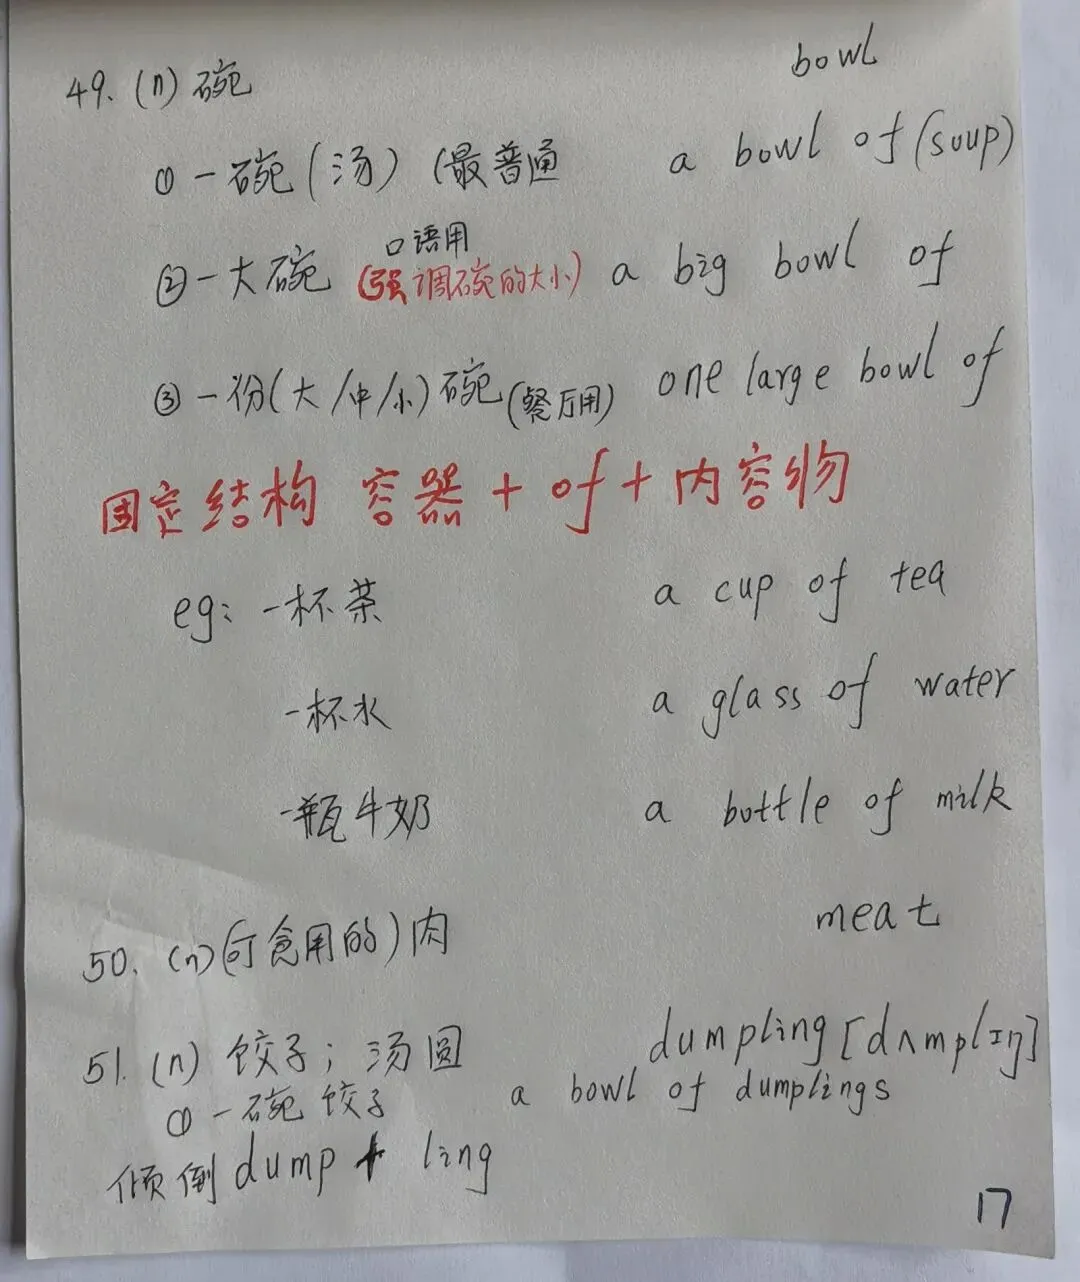 49. (n) 碗 bowl
① 一碗(汤) (最普通 a bowl of (soup)
口语用
② 一大碗 (强调碗的大小) a big bowl of
③ 一份(大/中/小)碗(餐厅用) one large bowl of
固定结构 容器 + of + 内容物
eg: 一杯茶 a cup of tea
一杯水 a glass of water
一瓶牛奶 a bottle of milk
50. (n) (可食用的) 肉 meat
51. (n) 饺子; 汤圆 dumpling [dʌmplɪŋ]
① 一碗饺子 a bowl of dumplings
倾倒 dump + ling
17